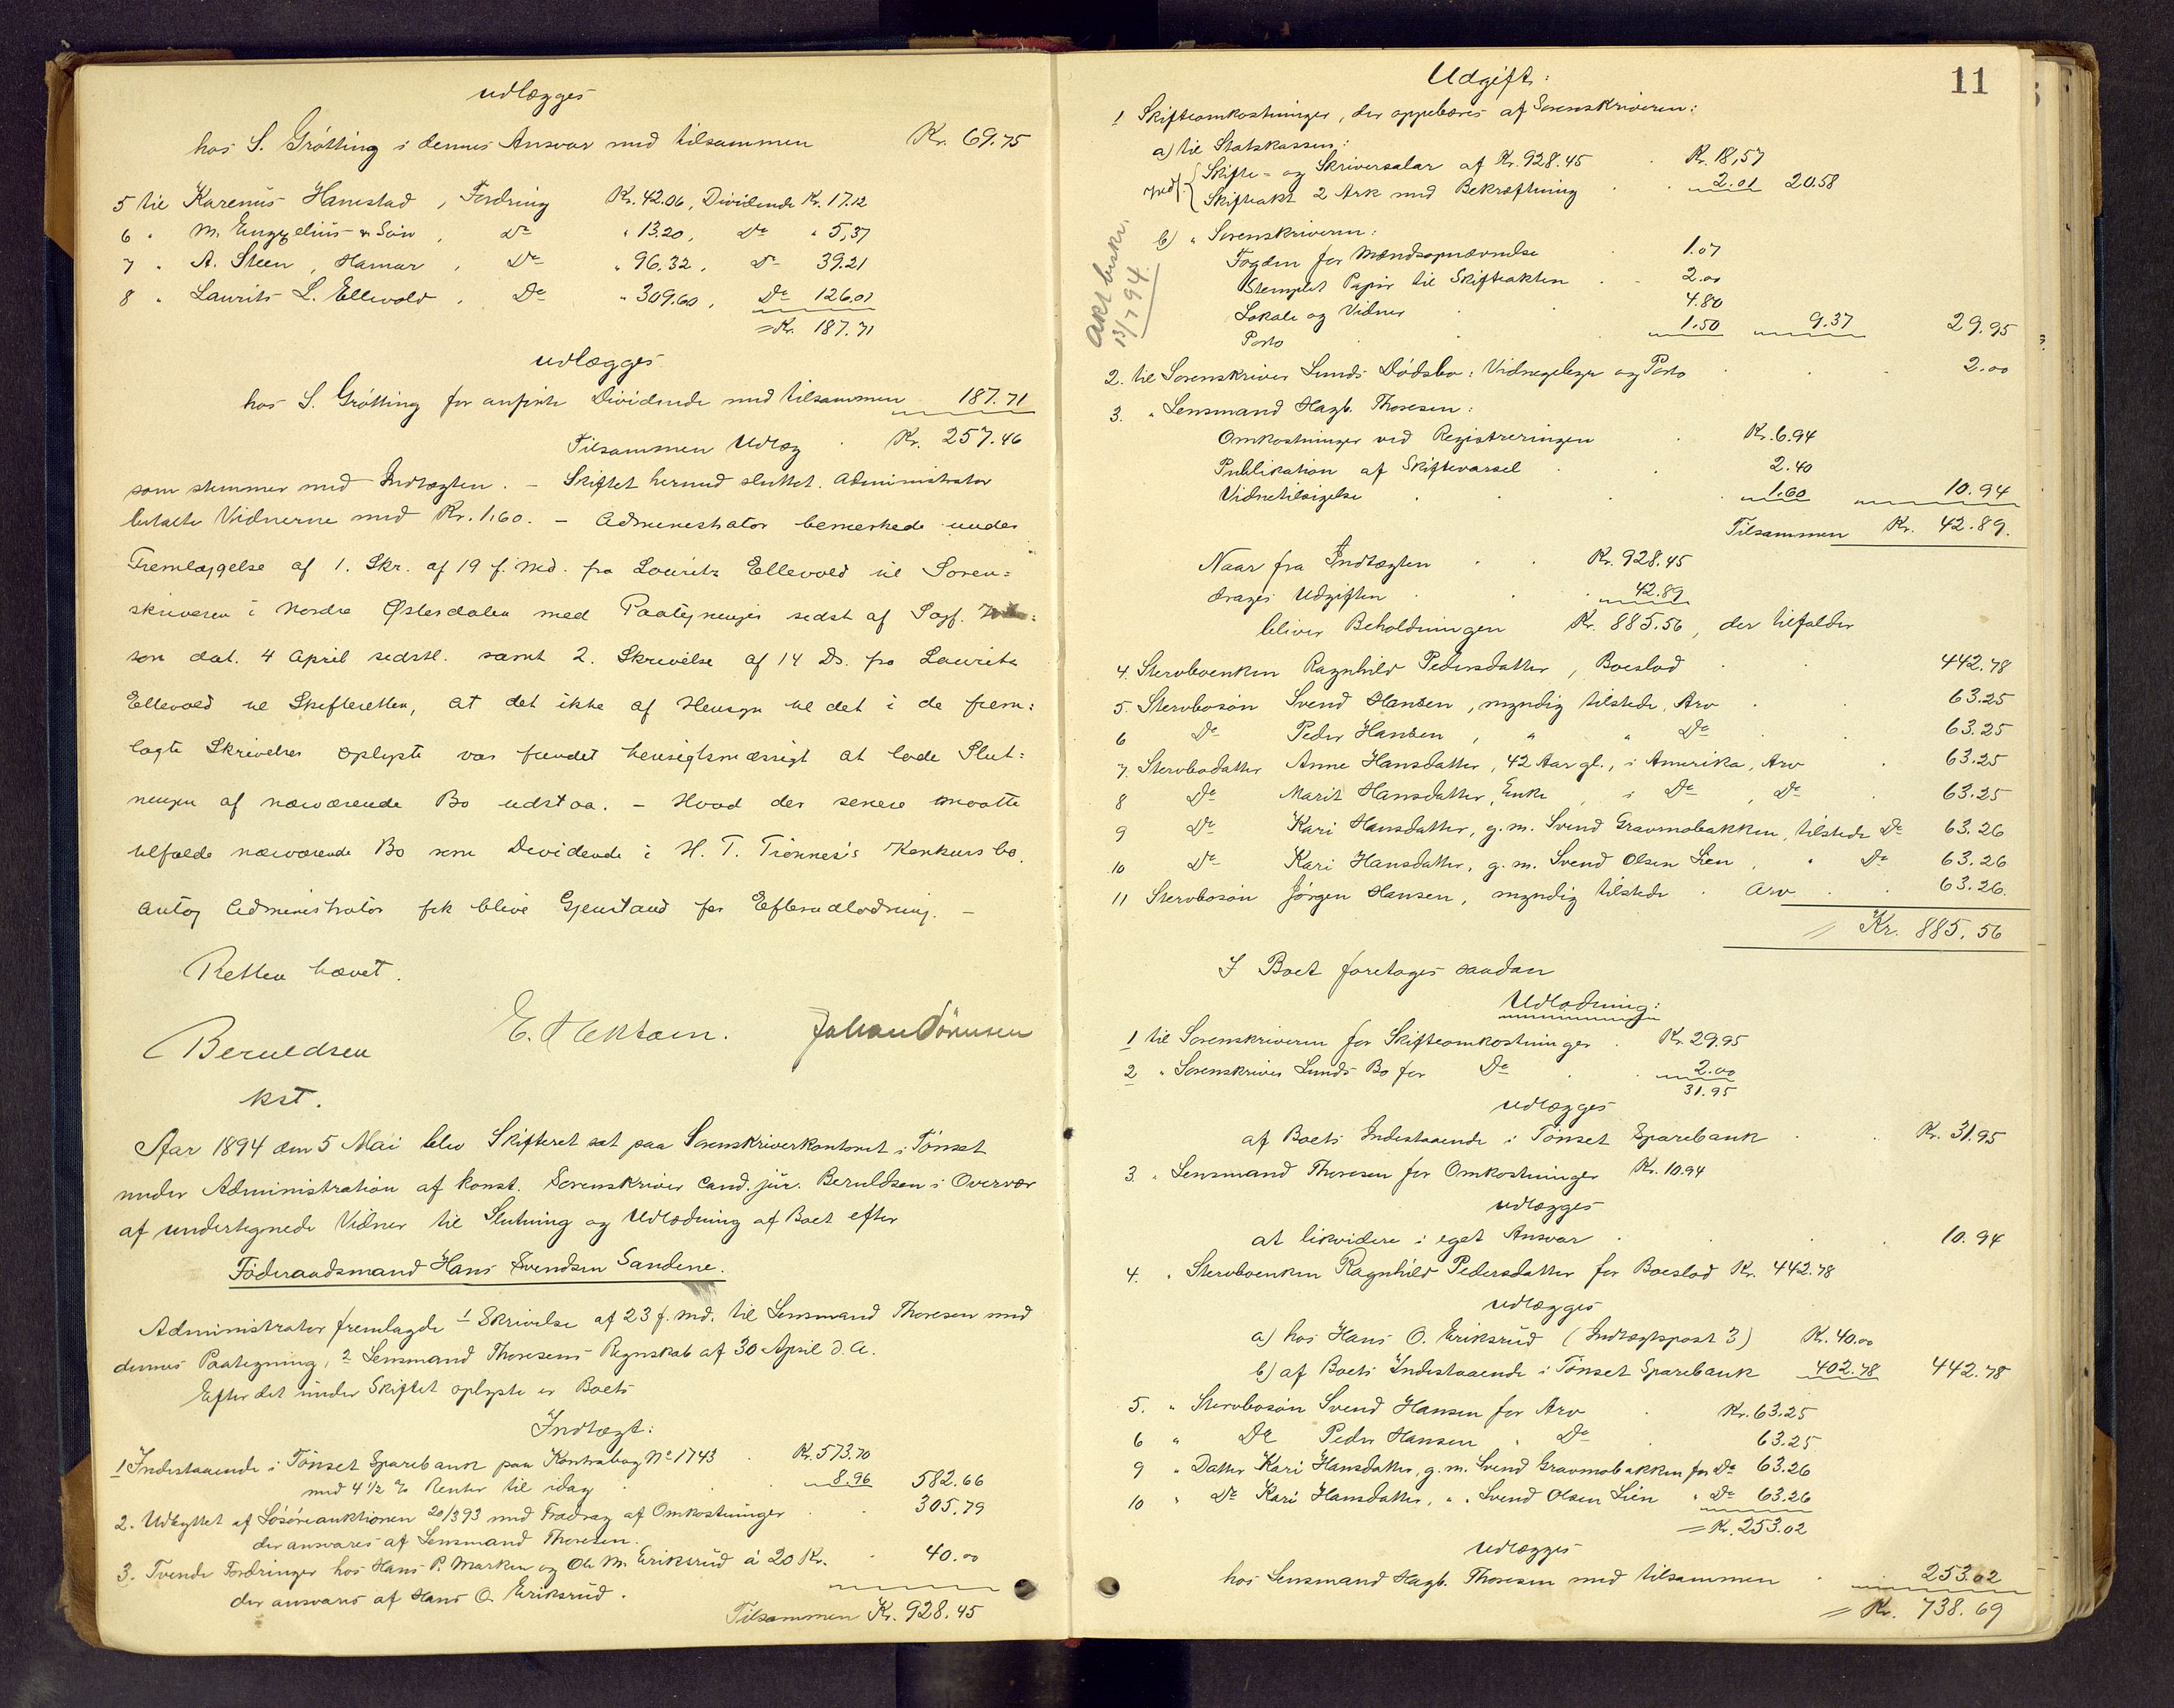 udlægges
hos S. Grötting i dennes Ansvar med tilsammen Kr. 69.75
5 til Karenus Hamstad, Fordring Kr. 42.06, Dividende Kr. 17.12
6 " M. Engzelius & Søn, Do " 13.20, Do " 5,37
7 " A. Steen, Hamar, Do " 96,32, Do 39.21
8 " Laurits L. Ellevold, Do " 309.60, Do 126.01
= Kr. 187.71
udlægges
hos S. Grötting for anførte Dividende med tilsammen 187.71
Tilsammen Udlæg Kr. 257.46
som stemmer med Indtægten. – Skiftet hermed sluttet. Administrator
betalte Vidnerne med Kr. 1.60. – Administrator bemerkede under
Fremlæggelse af 1. Skr. af 19 f. Md. fra Lauritz Ellevold til Soren=
skriveren i Nordre Østerdalen med Paategninger sedst af Sagf.
son dat. 4 April sedstl. samt 2. Skrivelse af 14 Ds. fra Lauritz
Ellevold til Skifteretten, at det ikke af Hensyn til det i de frem=
lagte Skrivelser oplyste var fundet hensigtsmæssigt at lade Slut=
ningen af nærværende Bo udstaa. – Hvad der senere maatte
tilfalde nærværende Bo som Dividende i H. T. Trönnes's Konkursbo,
antog Administrator fik blive Gjenstand for Efterudlodning. –
Retten hævet.
Beruldsen E. Johan Sörensen
kst.
Aar 1894 den 5 Mai blev Skifteret sat paa Sorenskriverkontoret i Tönset
under Administration af konst. Sorenskriver Cand. jur. Beruldsen i Overvær
af undertegnede Vidner til Slutning og Udlodning af Boet efter
Föderaadsmand Hans Svendsen Sandene.
Administrator fremlagde 1 Skrivelse af 23 f. Md. til Lensmand Thoresen med
dennes Paategning, 2 Lensmand Thoresens Regnskab af 30 April d. A.
Efter det under Skiftet oplyste er Boets
Indtægt:
1 Indestaaende i Tönset Sparebank paa Kontrabog No 1743 Kr. 573.70
med 4 1/2 % Renter til idag 8.96 582.66
2. Udbyttet af Løsöreauktionen 20/3 93 med Fradrag af Omkostninger 305.79
der ansvares af Lensmand Thoresen.
3. Tvende Fordringer hos Hans P. Marken og Ole M. Eriksrud á 20 Kr. 40.00
der ansvares af Hans O. Eriksrud.
Tilsammen Kr. 928.45
11
Udgift:
1 Skifteomkostninger, der oppebæres af Sorenskriveren:
a) til Statskassen:
Skifte- og Skriversalar af Kr. 928.45 Kr. 18,57
Skifteakt 2 Ark med Bekræftning 2.01 20.58
Akt beskr. 13/7 94.
b) " Sorenskriveren:
Fogden for Mandsopnævnelse 1.07
Stemplet Papir til Skifteakten 2.00
Lokale og Vidner 4.80
Porto 1.50 9.37 29.95
2. til Sorenskriver Lunds Dödsbo: Vidnegebyr og Porto 2.00
3. " Lensmand Hagb. Thoresen:
Omkostninger ved Registreringen Kr. 6.94
Publikation af Skiftevarsel 2.40
Vidnetilsigelse 1.60 10.94
Tilsammen Kr. 42.89.
Naar fra Indtægten Kr. 928.45
drages Udgiften 42.89
bliver Beholdningen Kr. 885.56, der tilfalder
4. Stervboenken Ragnhild Pedersdatter, Boeslod 442.78
5. Stervbosön Svend Hansen, myndig tilstede, Arv 63.25
6 Do Peder Hansen, " " Do 63.25
7. Stervbodatter Anne Hansdatter, 42 Aar gl., i Amerika, Arv 63.25
8 Do Marit Hansdatter, Enke, i Do, Do 63.25
9 Do Kari Hansdatter, g. m. Svend Gravmobakken, tilstede Do 63.26
10 Do Kari Hansdatter, g. m. Svend Olsen Lien, " Do 63.26
11 Stervbosön Jörgen Hansen, myndig tilstede Arv 63.26.
= Kr. 885.56
I Boet foretoges saadan
Udlodning:
1 til Sorenskriveren for Skifteomkostninger Kr. 29.95
2 " Sorenskriver Lunds Bo for Do 2.00
31.95
udlægges
af Boets Indestaaende i Tönset Sparebank Kr. 31.95
3. " Lensmand Thoresen for Omkostninger Kr. 10.94
udlægges
at likvidere i eget Ansvar 10.94
4. " Stervboenken Ragnhild Pedersdatter for Boeslod Kr. 442.78
udlægges
a) hos Hans O. Eriksrud (Indtægtspost 3) Kr. 40.00
b) af Boets Indestaaende i Tönset Sparebank 402.78 442.78
5. " Stervbosön Svend Hansen for Arv Kr. 63.25
6 " Do Peder Hansen " Do 63.25
9 " Datter Kari Hansdatter, g. m. Svend Gravmobakken for Do 63.26
10 " Do Kari Hansdatter, " " Svend Olsen Lien " Do 63.26
= Kr. 253.02
udlægges
hos Lensmand Hagb. Thoresen med tilsammen 253.02
= Kr. 738.69